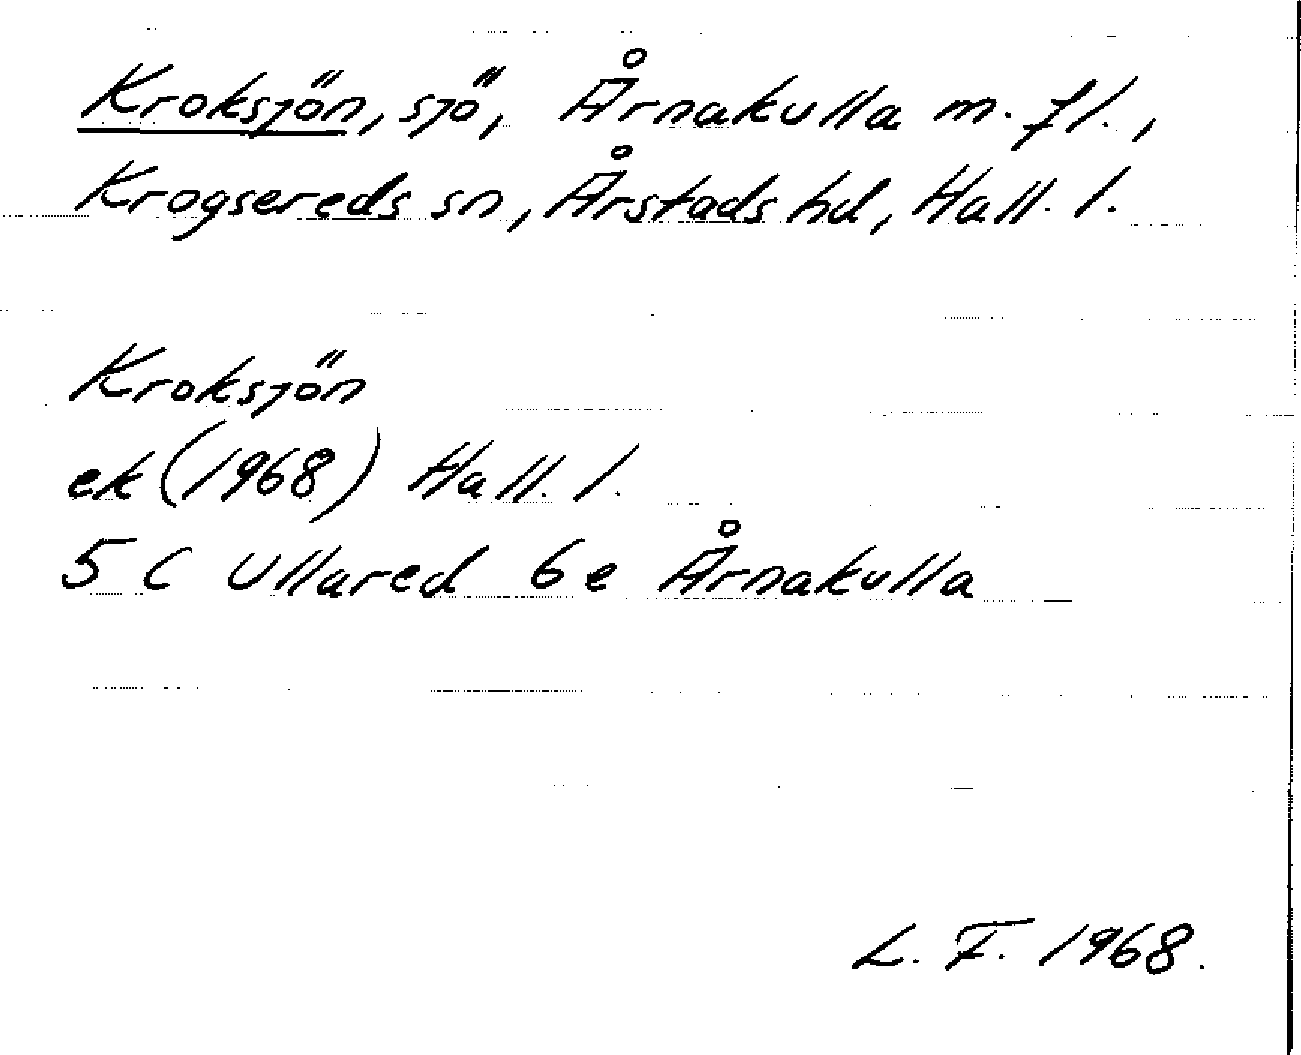 Kroksjön, sjö, Årnakulla m. fl.,
Krogsereds sn, Årstads hd, Hall. l.
Kroksjön
ek (1968) Hall. l.
5 C Ullared 6 e Årnakulla
L. F. 1968.